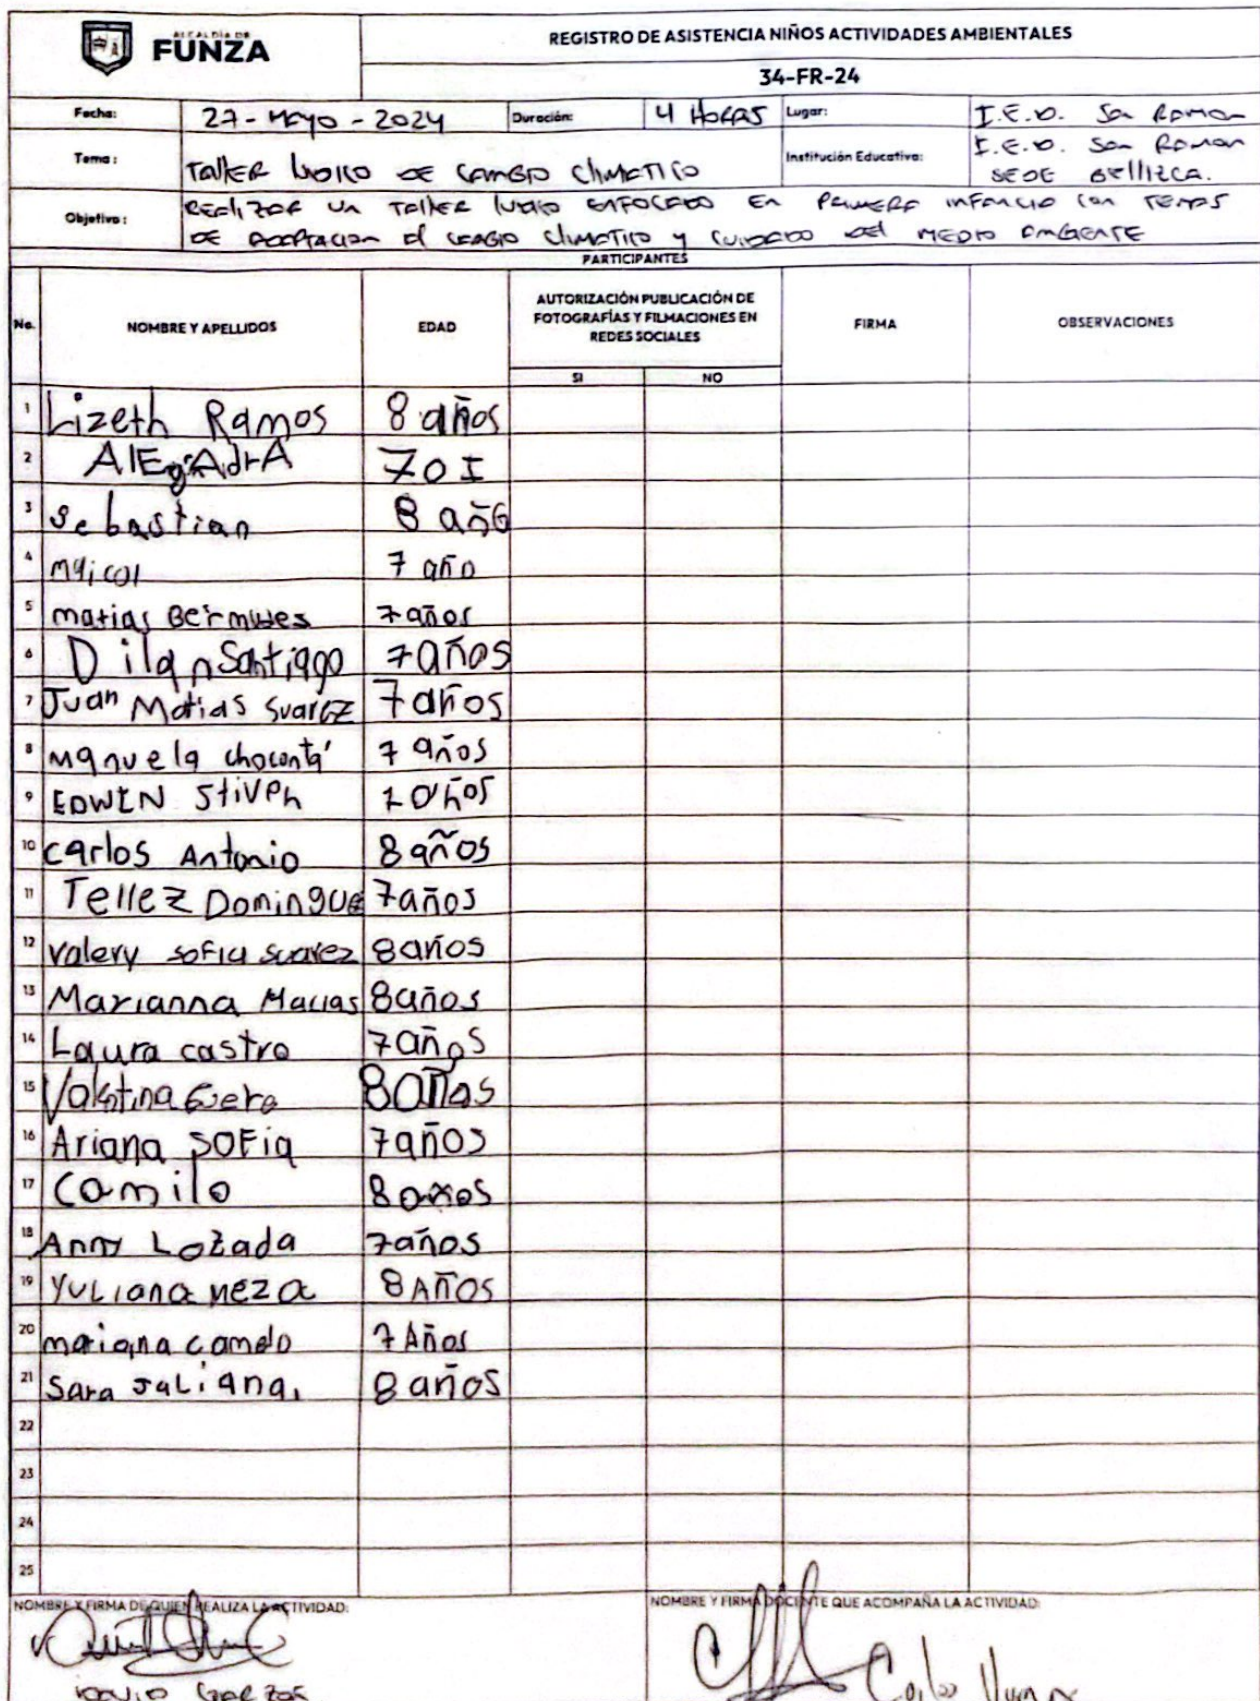 ALCALDÍA DE
FUNZA
REGISTRO DE ASISTENCIA NIÑOS ACTIVIDADES AMBIENTALES
34-FR-24
Fecha: 27-MAYO-2024 Duración: 4 HORAS Lugar: I.E.D. San Ramon
Tema: TALLER LUDICO DE CAMBIO CLIMATICO Institución Educativa: I.E.D. San Ramon
SEDE BELLIZCA.
Objetivo: REALIZAR UN TALLER LUDICO ENFOCADO EN PRIMERA INFANCIA CON TEMAS
DE ADAPTACION AL CAMBIO CLIMATICO Y CUIDADO DEL MEDIO AMBIENTE
PARTICIPANTES
No. NOMBRE Y APELLIDOS EDAD AUTORIZACIÓN PUBLICACIÓN DE FOTOGRAFÍAS Y FILMACIONES EN REDES SOCIALES FIRMA OBSERVACIONES
SI NO
1 Lizeth Ramos 8 años
2 AlEgAdrA 701
3 Sebastian 8 año
4 Maicol 7 año
5 matias Bermudes 7 años
6 Dilan Santiago 7 años
7 Juan Matias Suarez 7 años
8 Manuela chocontá 7 años
9 EDWIN Stiveh
10 carlos Antonio 8 años
11 Tellez Domingue 7 años
12 Valery sofia suarez 8 años
13 Marianna Macias 8 años
14 Laura castro 7 años
15 Valentina 8 años
16 Ariana SOFia 7 años
17 Camilo 8 años
18 Anny Lozada 7 años
19 Yuliana meza 8 AÑOS
20 mariana camelo 7 Años
21 Sara Juliana. 8 años
22
23
24
25
NOMBRE Y FIRMA DE QUIEN REALIZA LA ACTIVIDAD: NOMBRE Y FIRMA DOCENTE QUE ACOMPAÑA LA ACTIVIDAD: